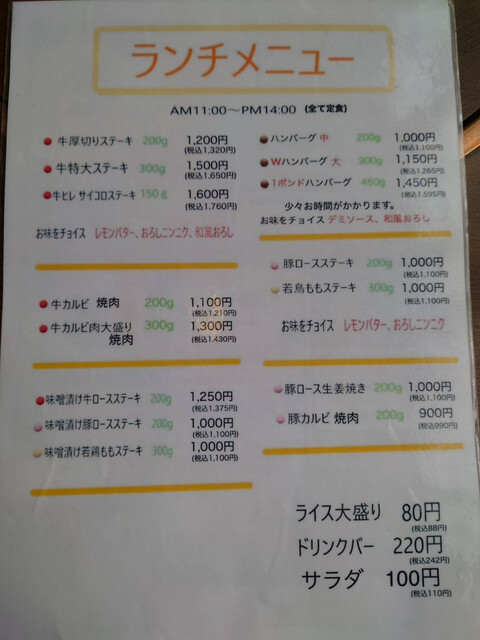 ランチメニュー
AM11:00～PM14:00 (全て定食)
牛厚切りステーキ 200g 1,200円
(税込1,320円)
牛特大ステーキ 300g 1,500円
(税込1,650円)
牛ヒレ サイコロステーキ 150g 1,600円
(税込1,760円)
お味をチョイス レモンバター、おろしニンニク、和風おろし
牛カルビ 焼肉 200g 1,100円
(税込1,210円)
牛カルビ肉大盛り 300g 1,300円
焼肉 (税込1,430円)
味噌漬け牛ロースステーキ 200g 1,250円
(税込1,375円)
味噌漬け豚ロースステーキ 200g 1,000円
(税込1,100円)
味噌漬け若鶏ももステーキ 300g 1,000円
(税込1,100円)
ハンバーグ 中 200g 1,000円
(税込1,100円)
Wハンバーグ 大 300g 1,150円
(税込1,265円)
1ポンドハンバーグ 450g 1,450円
(税込1,595円)
少々お時間がかかります。
お味をチョイス デミソース、和風おろし
豚ロースステーキ 200g 1,000円
(税込1,100円)
若鳥ももステーキ 300g 1,000円
(税込1,100円)
お味をチョイス レモンバター、おろしニンニク
豚ロース生姜焼き 200g 1,000円
(税込1,100円)
豚カルビ 焼肉 200g 900円
(税込990円)
ライス大盛り 80円
(税込88円)
ドリンクバー 220円
(税込242円)
サラダ 100円
(税込110円)